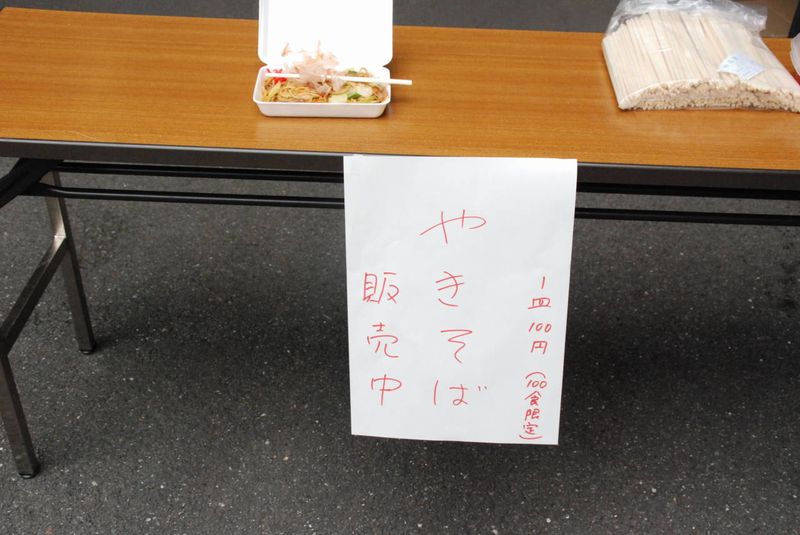 1皿100円(100食限定)
やきそば
販売中